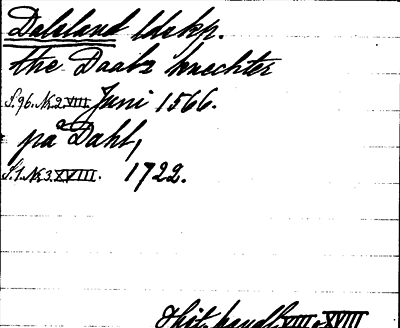 Dalsland ldskp.
the Daalz knechter
S.96.N.2.VIII Juni 1566.
på Dahl,
S.1.N.3.XVIII. 1722.
Hist. handl. VIII o XVIII